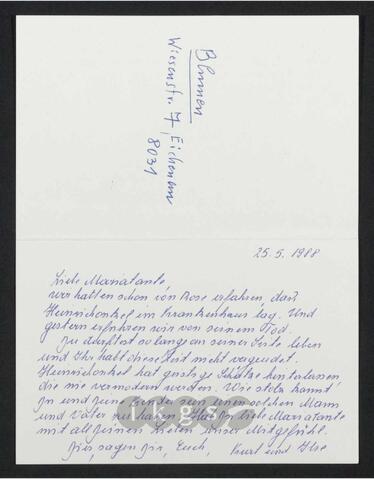 Blumen
Wiesenstr. 7, Eichenau
8031
25.5.1988
Liebe Mariatante,
wir hatten schon von Rose erfahren, daß
Heinrichonkel im Krankenhaus lag. Und
gestern erfuhren wir von seinem Tod.
Du durftest so lange an seiner Seite leben
und Ihr habt diese Zeit nicht vergeudet.
Heinrichonkel hat geistige Schätze hinterlassen
die nie vermodern werden. Wie stolz kannst
Du und Deine Kinder sein einen solchen Mann
und Vater zu haben. Dir liebe Mariatante
mit all Deinen Lieben unser Mitgefühl.
Dies sagen Dir, Euch, Kurt und Ilse
ikgs